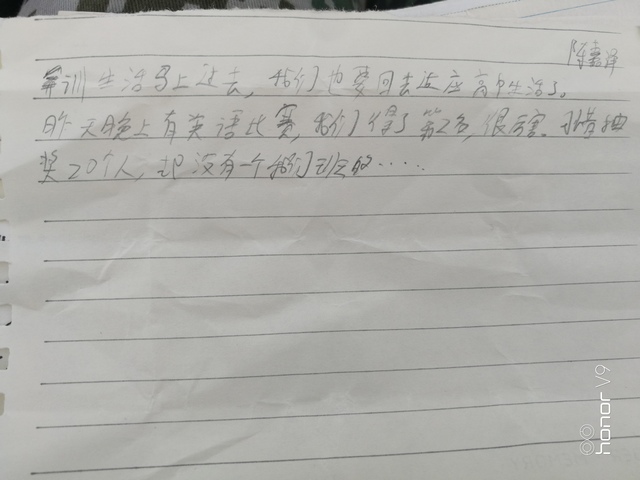 陈嘉译
军训生活马上过去，我们也要回去适应高中生活了。
昨天晚上有英语比赛，我们得了第2名，很厉害。可惜抽
奖20个人，却没有一个我们班的·····
honor V9